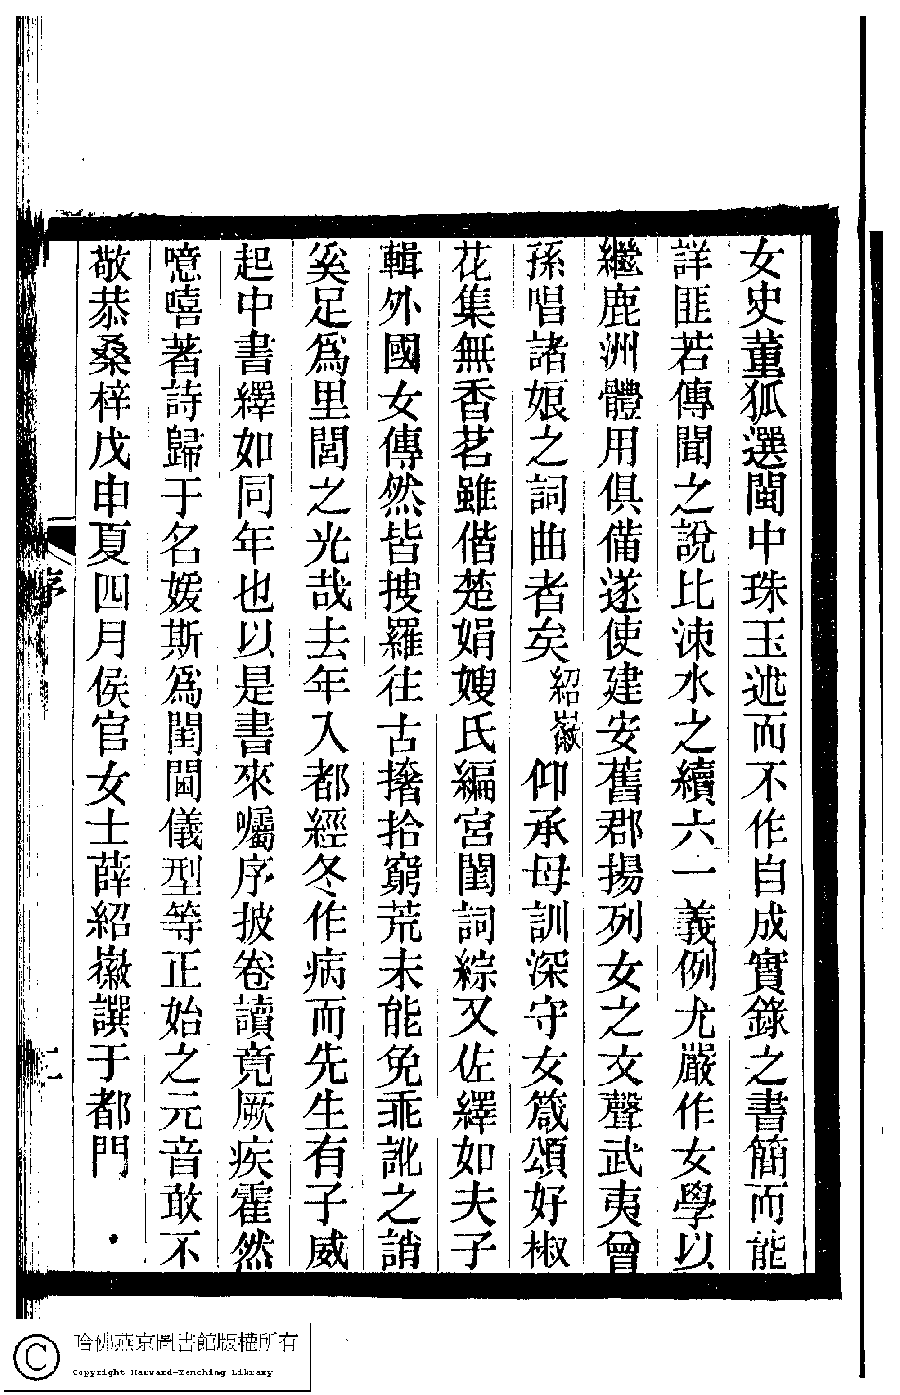 女史董狐選閩中珠玉述而不作自成實錄之書簡而能
詳匪若傳聞之說比涑水之續六一義例尤嚴作女學以
繼鹿洲體用俱備遂使建安舊郡揚列女之文聲武夷曾
孫唱諸娘之詞曲者矣紹徽仰承母訓深守女箴頌好椒
花集無香茗雖偕楚娟嫂氏編宮閨詞綜又佐繹如夫子
輯外國女傳然皆搜羅往古撦拾窮荒未能免乖訛之誚
奚足爲里閭之光哉去年入都經冬作病而先生有子威
起中書繹如同年也以是書來囑序披卷讀竟厥疾霍然
噫嘻著詩歸于名媛斯爲閨閫儀型等正始之元音敢不
敬恭桑梓戊申夏四月侯官女士薛紹徽譔于都門
序
二
哈佛燕京圖書館版權所有
Copyright Harvard-Yenching Library